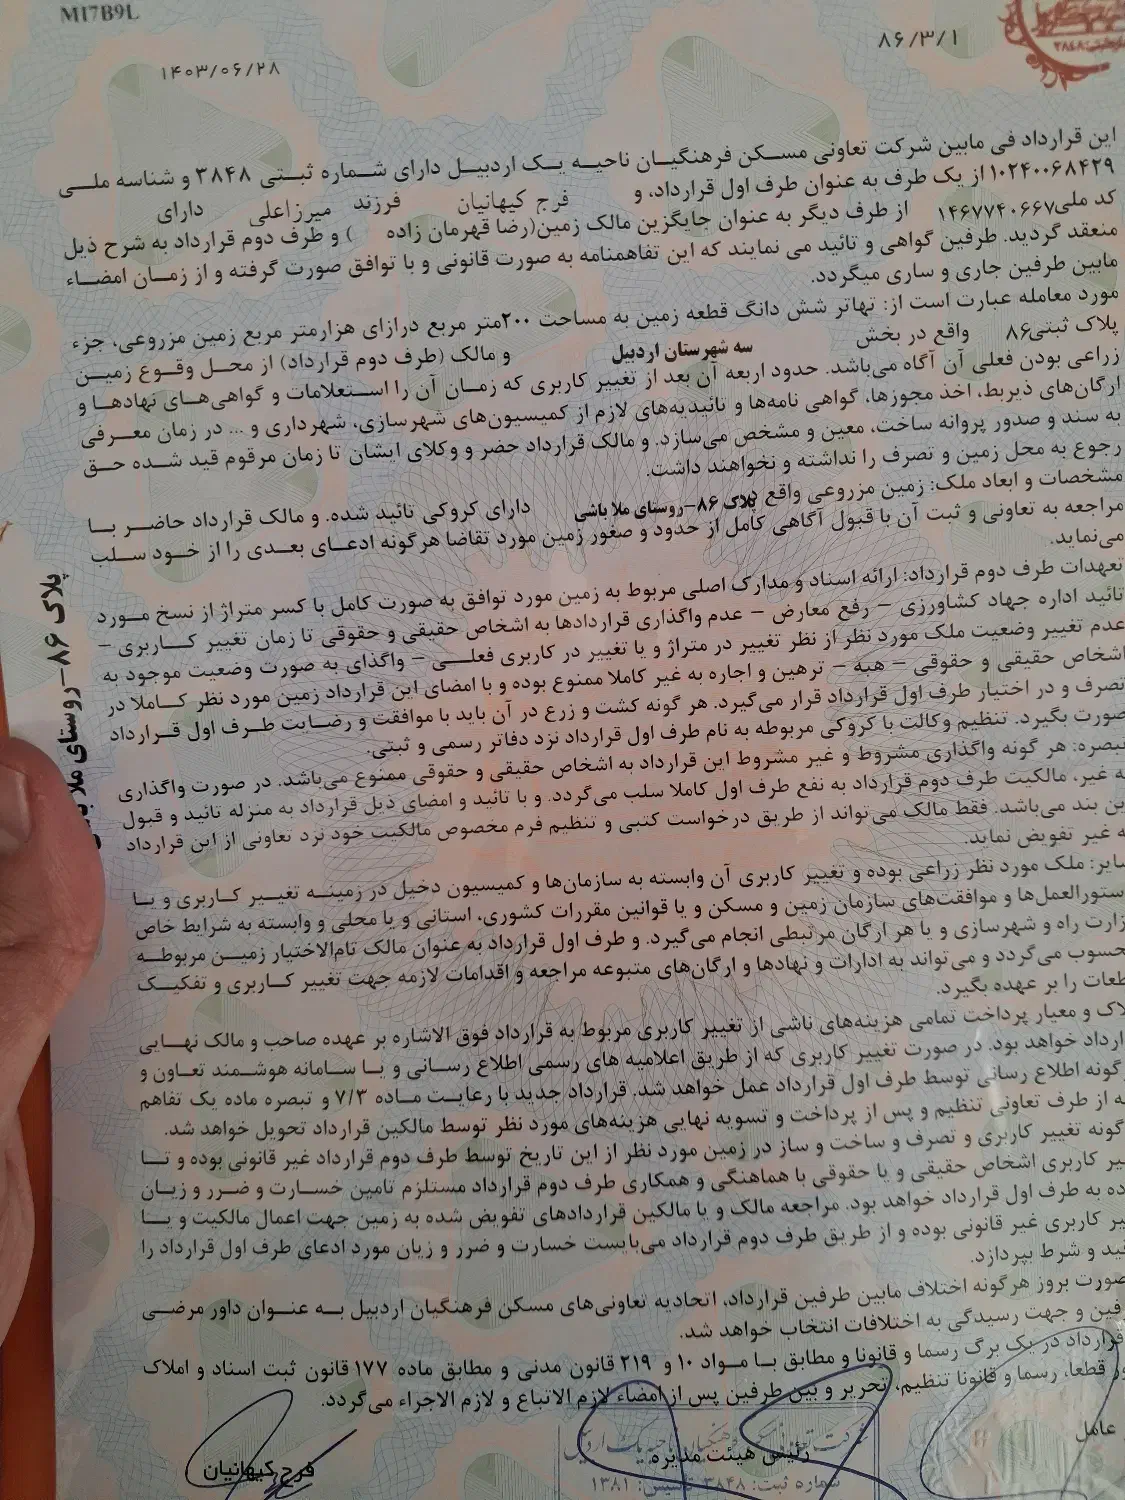 MI7B9L
۸۶/۳/۱
۳۸۴۸
۱۴۰۳/۰۶/۲۸
این قرارداد فی مابین شرکت تعاونی مسکن فرهنگیان ناحیه یک اردبیل دارای شماره ثبتی ۳۸۴۸ و شناسه ملی
۱۰۲۴۰۰۶۸۴۲۹ از یک طرف به عنوان طرف اول قرارداد، و فرج کیهانیان فرزند میرزاعلی دارای
کد ملی ۱۴۶۷۷۴۰۶۶۷ از طرف دیگر به عنوان جایگزین مالک زمین(رضا قهرمان زاده ) و طرف دوم قرارداد به شرح ذیل
منعقد گردید. طرفین گواهی و تائید می نمایند که این تفاهمنامه به صورت قانونی و با توافق صورت گرفته و از زمان امضاء
مابین طرفین جاری و ساری میگردد.
مورد معامله عبارت است از: تهاتر شش دانگ قطعه زمین به مساحت ۲۰۰متر مربع درازای هزارمتر مربع زمین مزروعی، جزء
پلاک ثبتی۸۶ واقع در بخش سه شهرستان اردبیل و مالک (طرف دوم قرارداد) از محل وقوع زمین
زراعی بودن فعلی آن آگاه می‌باشد. حدود اربعه آن بعد از تغییر کاربری که زمان آن را استعلامات و گواهی‌های نهادها و
ارگان‌های ذیربط، اخذ مجوزها، گواهی نامه‌ها و تائیدیه‌های لازم از کمیسیون‌های شهرسازی، شهرداری و ... در زمان معرفی
به سند و صدور پروانه ساخت، معین و مشخص می‌سازد. و مالک قرارداد حضر و وکلای ایشان تا زمان مرقوم قید شده حق
رجوع به محل زمین و تصرف را نداشته و نخواهند داشت.
مشخصات و ابعاد ملک: زمین مزروعی واقع در پلاک ۸۶-روستای ملا باشی دارای کروکی تائید شده. و مالک قرارداد حاضر با
مراجعه به تعاونی و ثبت آن با قبول آگاهی کامل از حدود و صغور زمین مورد تقاضا هرگونه ادعای بعدی را از خود سلب
می‌نماید.
تعهدات طرف دوم قرارداد: ارائه اسناد و مدارک اصلی مربوط به زمین مورد توافق به صورت کامل با کسر متراژ از نسخ مورد
تائید اداره جهاد کشاورزی – رفع معارض – عدم واگذاری قراردادها به اشخاص حقیقی و حقوقی تا زمان تغییر کاربری –
عدم تغییر وضعیت ملک مورد نظر از نظر تغییر در متراژ و یا تغییر در کاربری فعلی – واگذای به صورت وضعیت موجود به
اشخاص حقیقی و حقوقی – هبه – ترهین و اجاره به غیر کاملا ممنوع بوده و با امضای این قرارداد زمین مورد نظر کاملا در
تصرف و در اختیار طرف اول قرارداد قرار می‌گیرد. هر گونه کشت و زرع در آن باید با موافقت و رضایت طرف اول قرارداد
صورت بگیرد. تنظیم وکالت با کروکی مربوطه به نام طرف اول قرارداد نزد دفاتر رسمی و ثبتی.
تبصره: هر گونه واگذاری مشروط و غیر مشروط این قرارداد به اشخاص حقیقی و حقوقی ممنوع می‌باشد. در صورت واگذاری
به غیر، مالکیت طرف دوم قرارداد به نفع طرف اول کاملا سلب می‌گردد. و با تائید و امضای ذیل قرارداد به منزله تائید و قبول
ین بند می‌باشد. فقط مالک می‌تواند از طریق درخواست کتبی و تنظیم فرم مخصوص مالکیت خود نزد تعاونی از این قرارداد
ه غیر تفویض نماید.
سایر: ملک مورد نظر زراعی بوده و تغییر کاربری آن وابسته به سازمان‌ها و کمیسیون دخیل در زمینه تغییر کاربری و یا
ستورالعمل‌ها و موافقت‌های سازمان زمین و مسکن و یا قوانین مقررات کشوری، استانی و یا محلی و وابسته به شرایط خاص
زارت راه و شهرسازی و یا هر ارگان مرتبطی انجام می‌گیرد. و طرف اول قرارداد به عنوان مالک تام‌الاختیار زمین مربوطه
حسوب می‌گردد و می‌تواند به ادارات و نهادها و ارگان‌های متبوعه مراجعه و اقدامات لازمه جهت تغییر کاربری و تفکیک
طعات را بر عهده بگیرد.
لاک و معیار پرداخت تمامی هزینه‌های ناشی از تغییر کاربری مربوط به قرارداد فوق الاشاره بر عهده صاحب و مالک نهایی
ارداد خواهد بود. در صورت تغییر کاربری که از طریق اعلامیه های رسمی اطلاع رسانی و یا سامانه هوشمند تعاون و
گونه اطلاع رسانی توسط طرف اول قرارداد عمل خواهد شد. قرارداد جدید با رعایت ماده ۷/۳ و تبصره ماده یک تفاهم
ه از طرف تعاونی تنظیم و پس از پرداخت و تسویه نهایی هزینه‌های مورد نظر توسط مالکین قرارداد تحویل خواهد شد.
گونه تغییر کاربری و تصرف و ساخت و ساز در زمین مورد نظر از این تاریخ توسط طرف دوم قرارداد غیر قانونی بوده و تا
یر کاربری اشخاص حقیقی و یا حقوقی با هماهنگی و همکاری طرف دوم قرارداد مستلزم تامین خسارت و ضرر و زیان
ده به طرف اول قرارداد خواهد بود. مراجعه مالک و یا مالکین قراردادهای تفویض شده به زمین جهت اعمال مالکیت و یا
یر کاربری غیر قانونی بوده و از طریق طرف دوم قرارداد می‌بایست خسارت و ضرر و زیان مورد ادعای طرف اول قرارداد را
قید و شرط بپردازد.
صورت بروز هرگونه اختلاف مابین طرفین قرارداد، اتحادیه تعاونی‌های مسکن فرهنگیان اردبیل به عنوان داور مرضی
فین و جهت رسیدگی به اختلافات انتخاب خواهد شد.
قرارداد در یک برگ رسما و قانونا و مطابق با مواد ۱۰ و ۲۱۹ قانون مدنی و مطابق ماده ۱۷۷ قانون ثبت اسناد و املاک
ور قطعا، رسما و قانونا تنظیم، تحریر و بین طرفین پس از امضاء لازم الاتباع و لازم الاجراء می‌گردد.
عامل
رئیس هیئت مدیره
فرج کیهانیان
شماره ثبت: ۳۸۴۸ تاسیس: ۱۳۸۱
پلاک ۸۶-روستای ملا